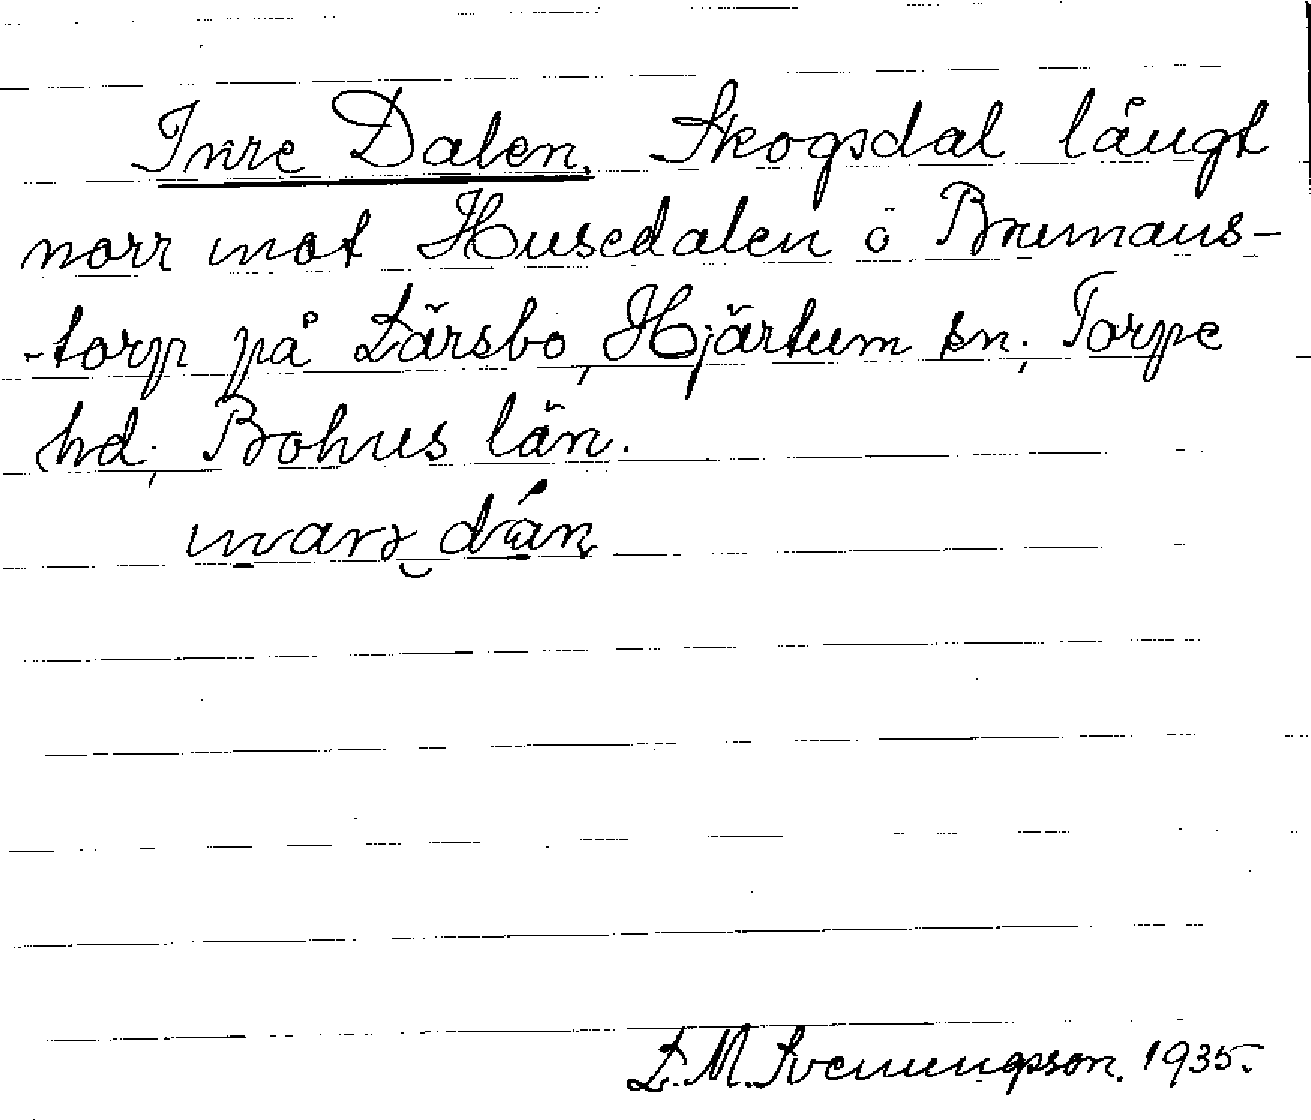 Inre Dalen. Skogsdal långt
norr mot Husedalen o Brumans-
-torp på Lärsbo, Hjärtum sn; Torpe
hd; Bohus län.
D. M. Svenungsson. 1935.